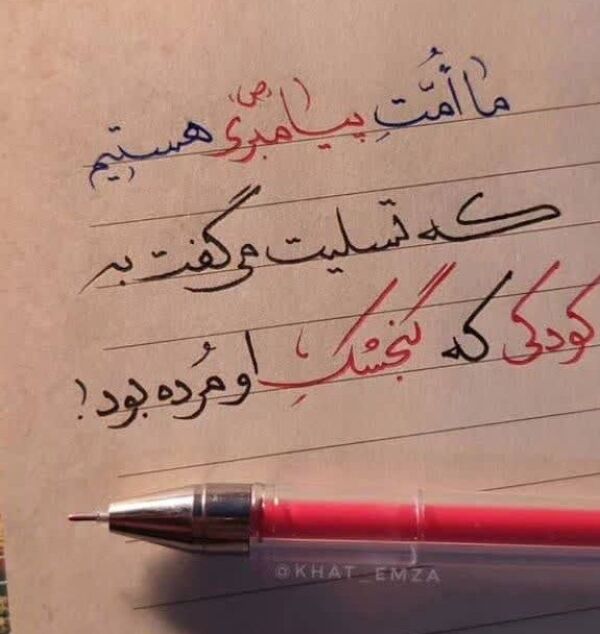 ما اُمّتِ پیامبری (ص) هستیم
که تسلیت می‌گفت به
کودکی که گنجشکِ او مُرده بود!
@KHAT_EMZA